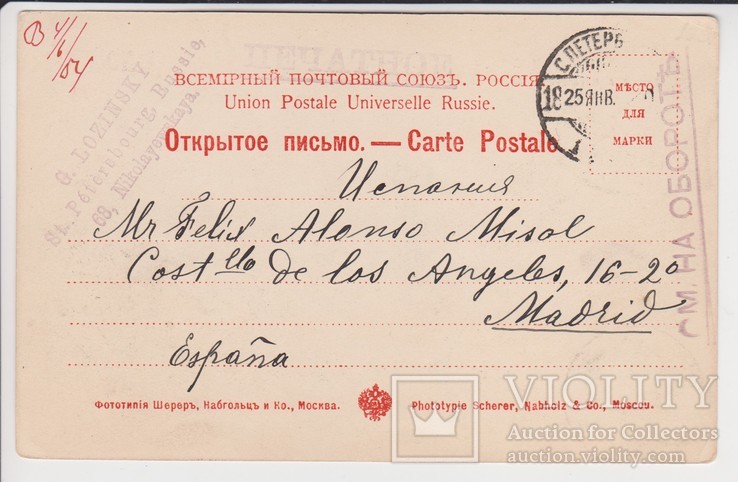 В 4/6/04
G. LOZINSKY
St. Pétersbourg, Russie,
68, Nikolayewskaya.
ПЕЧАТНОЕ
ВСЕМІРНЫЙ ПОЧТОВЫЙ СОЮЗЪ. РОССІЯ
Union Postale Universelle Russie.
Открытое письмо. — Carte Postale
С.ПЕТЕРБ
18 25 ЯНВ.
МѢСТО
ДЛЯ
МАРКИ
СМ. НА ОБОРОТѢ
Испания
Mr Felix Alonso Misol
Costlla de los Angeles, 16-20
Madrid
España
Фототипія Шереръ, Набгольцъ и Ко., Москва.
Phototypie Scherer, Nabholz & Co., Moscou.
VIOLITY
Auction for Collectors
auction.violity.com